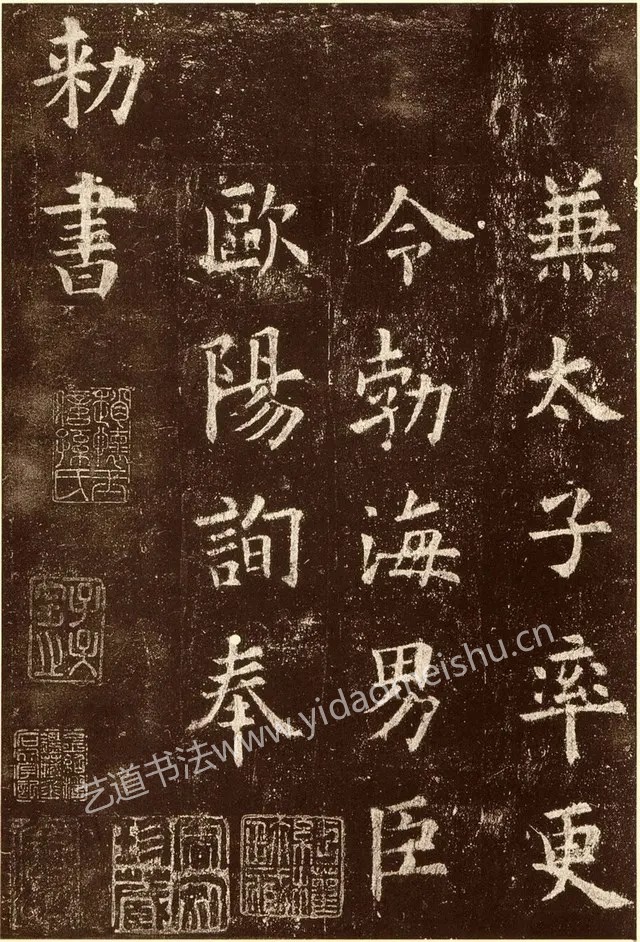 兼太子率更
令勃海男臣
歐陽詢奉
勑書
艺道书法www.yidaomeishu.cn